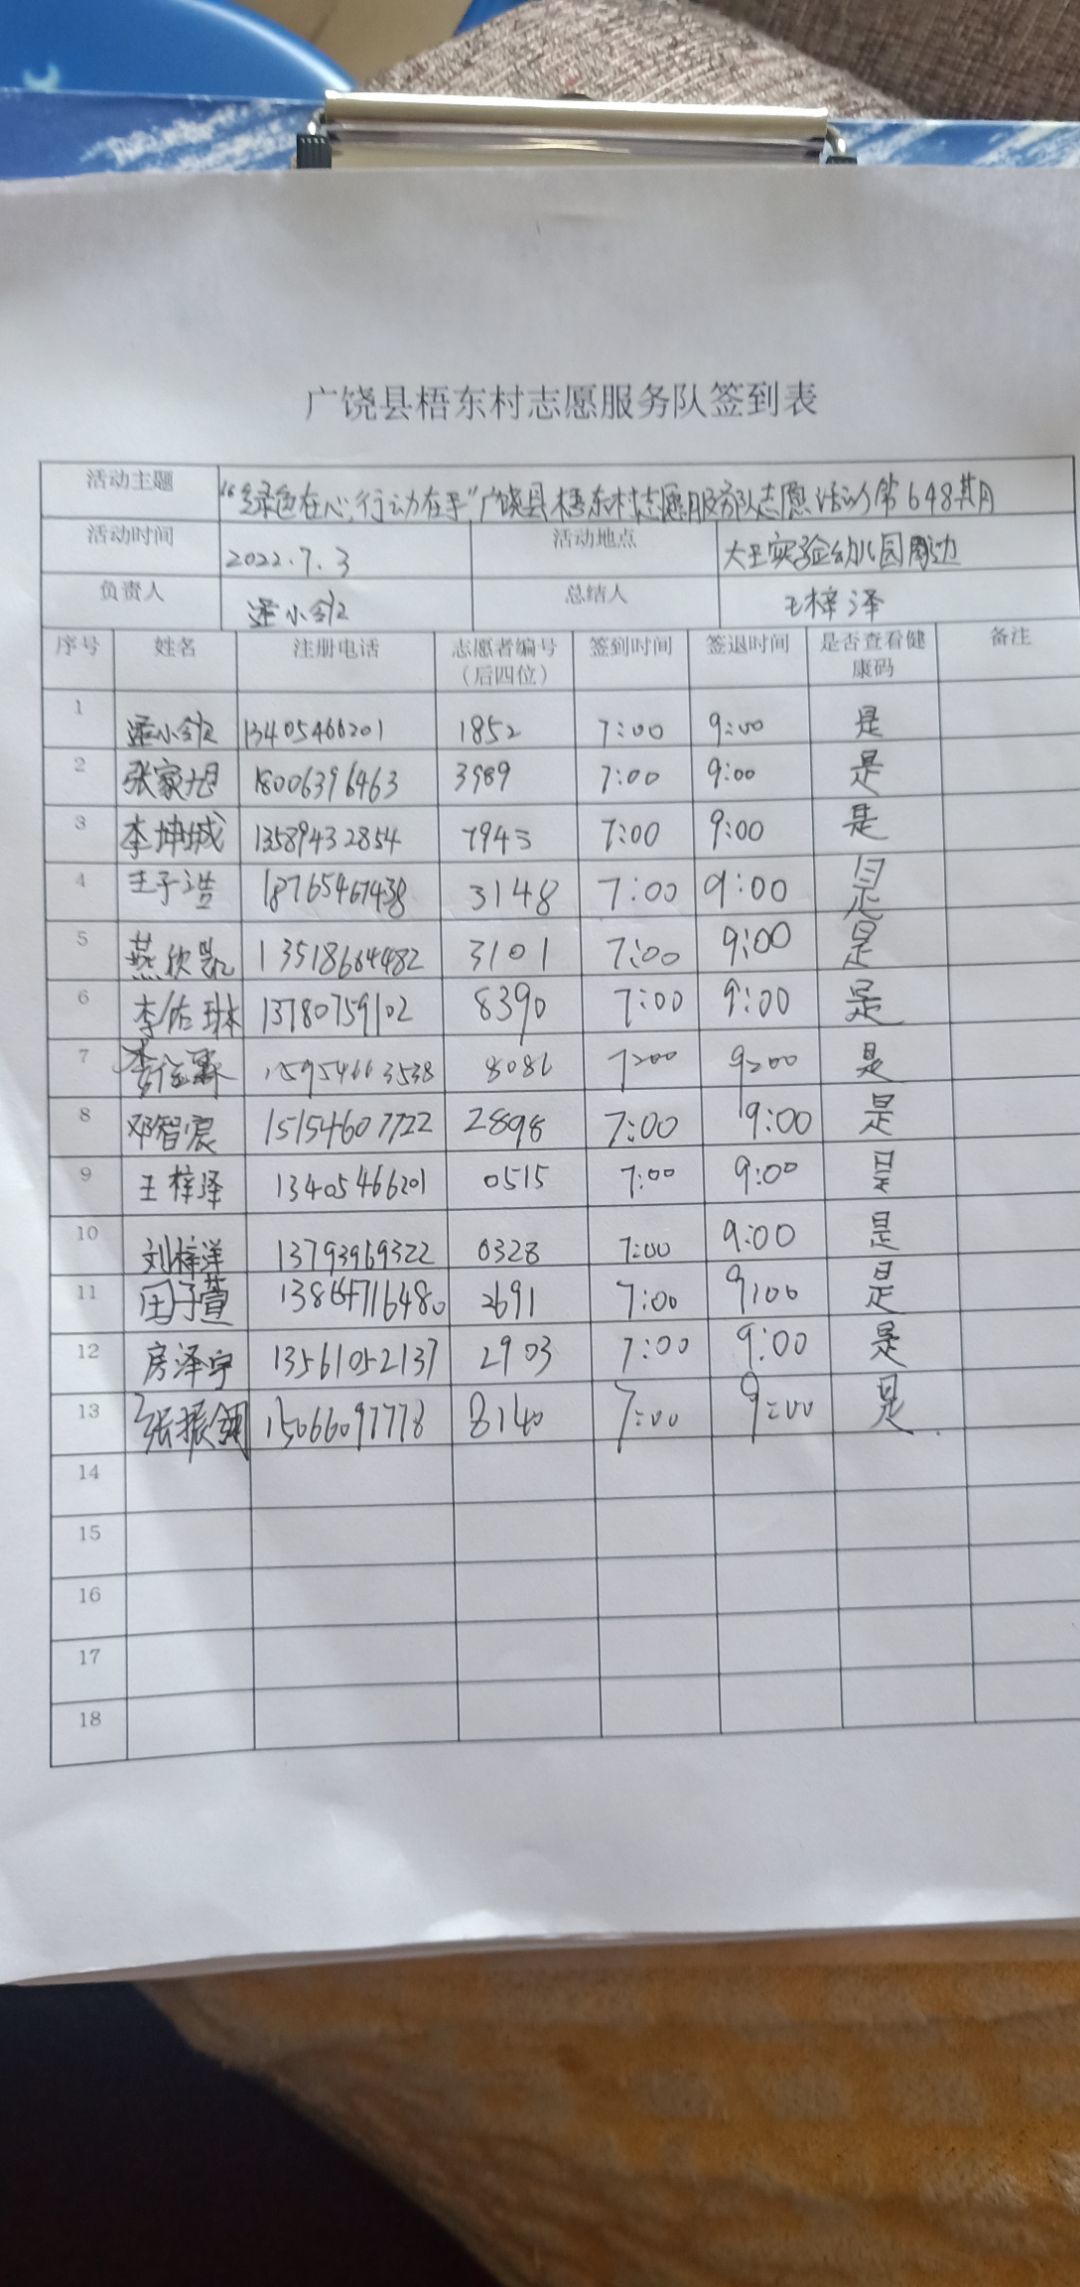 广饶县梧东村志愿服务队签到表
活动主题 “绿色在心,行动在手”广饶县梧东村志愿服务队志愿活动第648期
活动时间 2022.7.3 活动地点 大王实验幼儿园周边
负责人 小 总结人 王梓泽
序号 姓名 注册电话 志愿者编号(后四位) 签到时间 签退时间 是否查看健康码 备注
1 小 13405466201 1852 7:00 9:00 是
2 张家旭 18006396463 3989 7:00 9:00 是
3 李坤城 13589432854 7945 7:00 9:00 是
4 王子浩 18765467438 3148 7:00 9:00 是
5 燕欣凯 13518664482 3101 7:00 9:00 是
6 李佑琳 13780759102 8390 7:00 9:00 是
7 李 15954663538 8086 7:00 9:00 是
8 邓智宸 15154607722 2898 7:00 9:00 是
9 王梓泽 13405466201 0515 7:00 9:00 是
10 刘梓洋 13793969322 0328 7:00 9:00 是
11 子萱 2691 7:00 9:00 是
12 房泽宇 13561052137 2903 7:00 9:00 是
13 张振 15066097778 8140 7:00 9:00 是
14
15
16
17
18